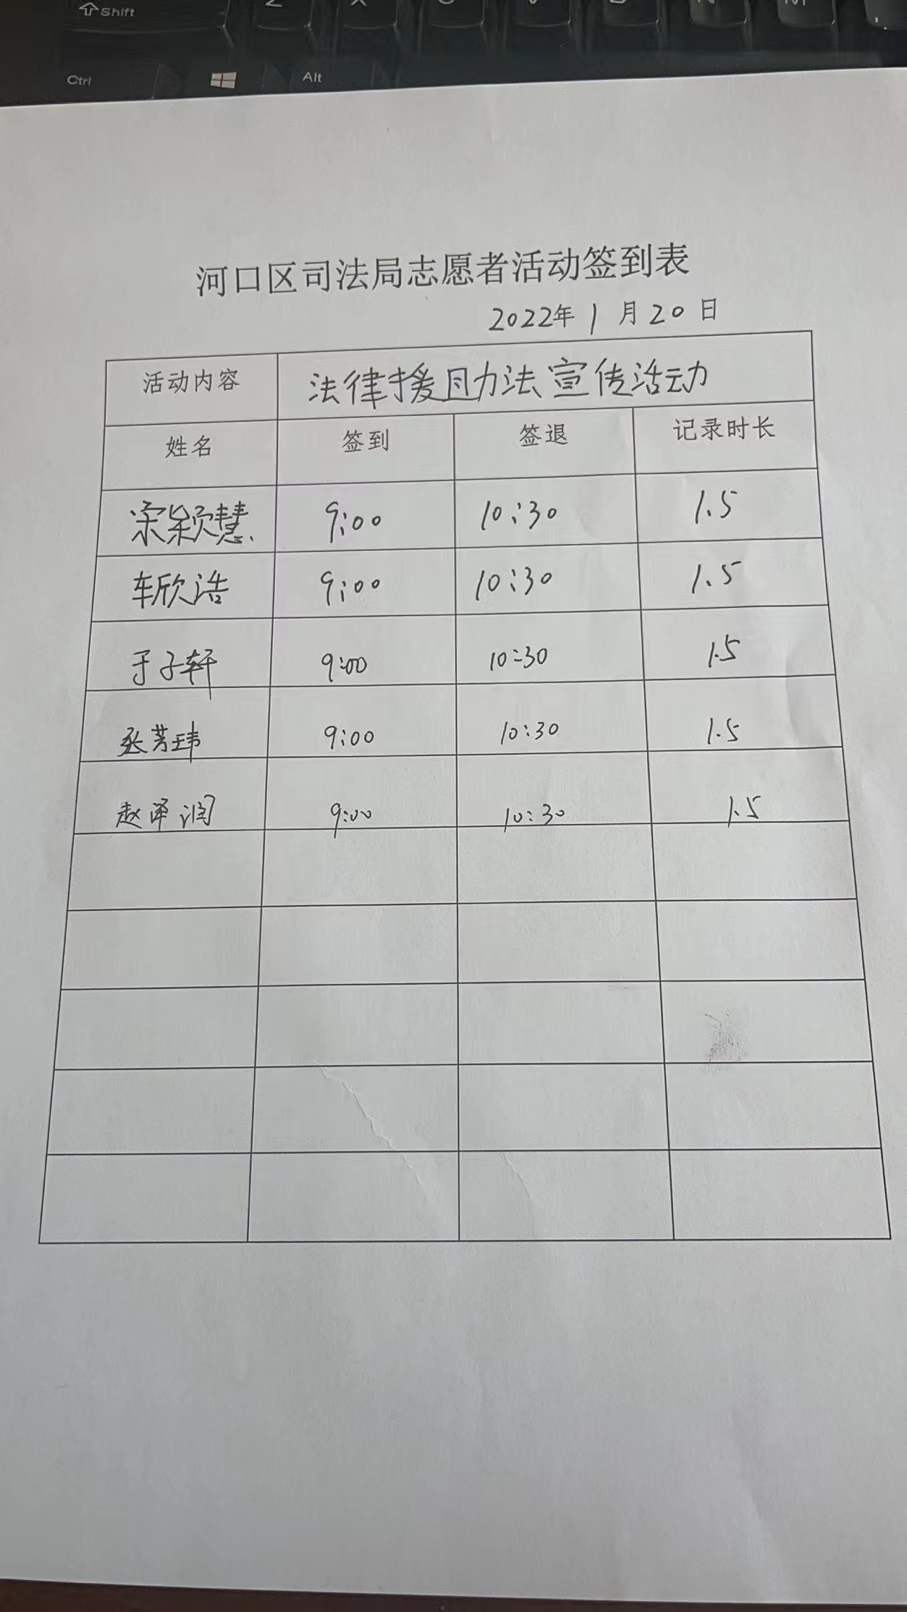 Shift
Z X C V B N M ,
Ctrl Alt
河口区司法局志愿者活动签到表
2022年 1 月 20 日
活动内容 法律援助法宣传活动
姓名 签到 签退 记录时长
宋颖慧 9:00 10:30 1.5
车欣浩 9:00 10:30 1.5
于子轩 9:00 10:30 1.5
张芳玮 9:00 10:30 1.5
赵泽润 9:00 10:30 1.5